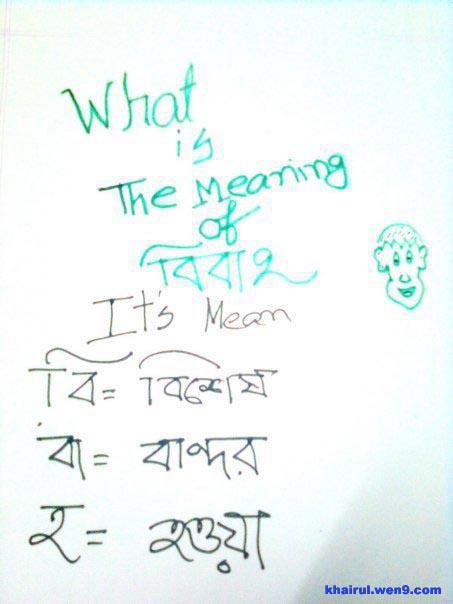 What
is
The Meaning
of
বিবাহ
It's Mean
বি = বিশেষ
বা = বান্দর
হ = হওয়া
khairul.wen9.com